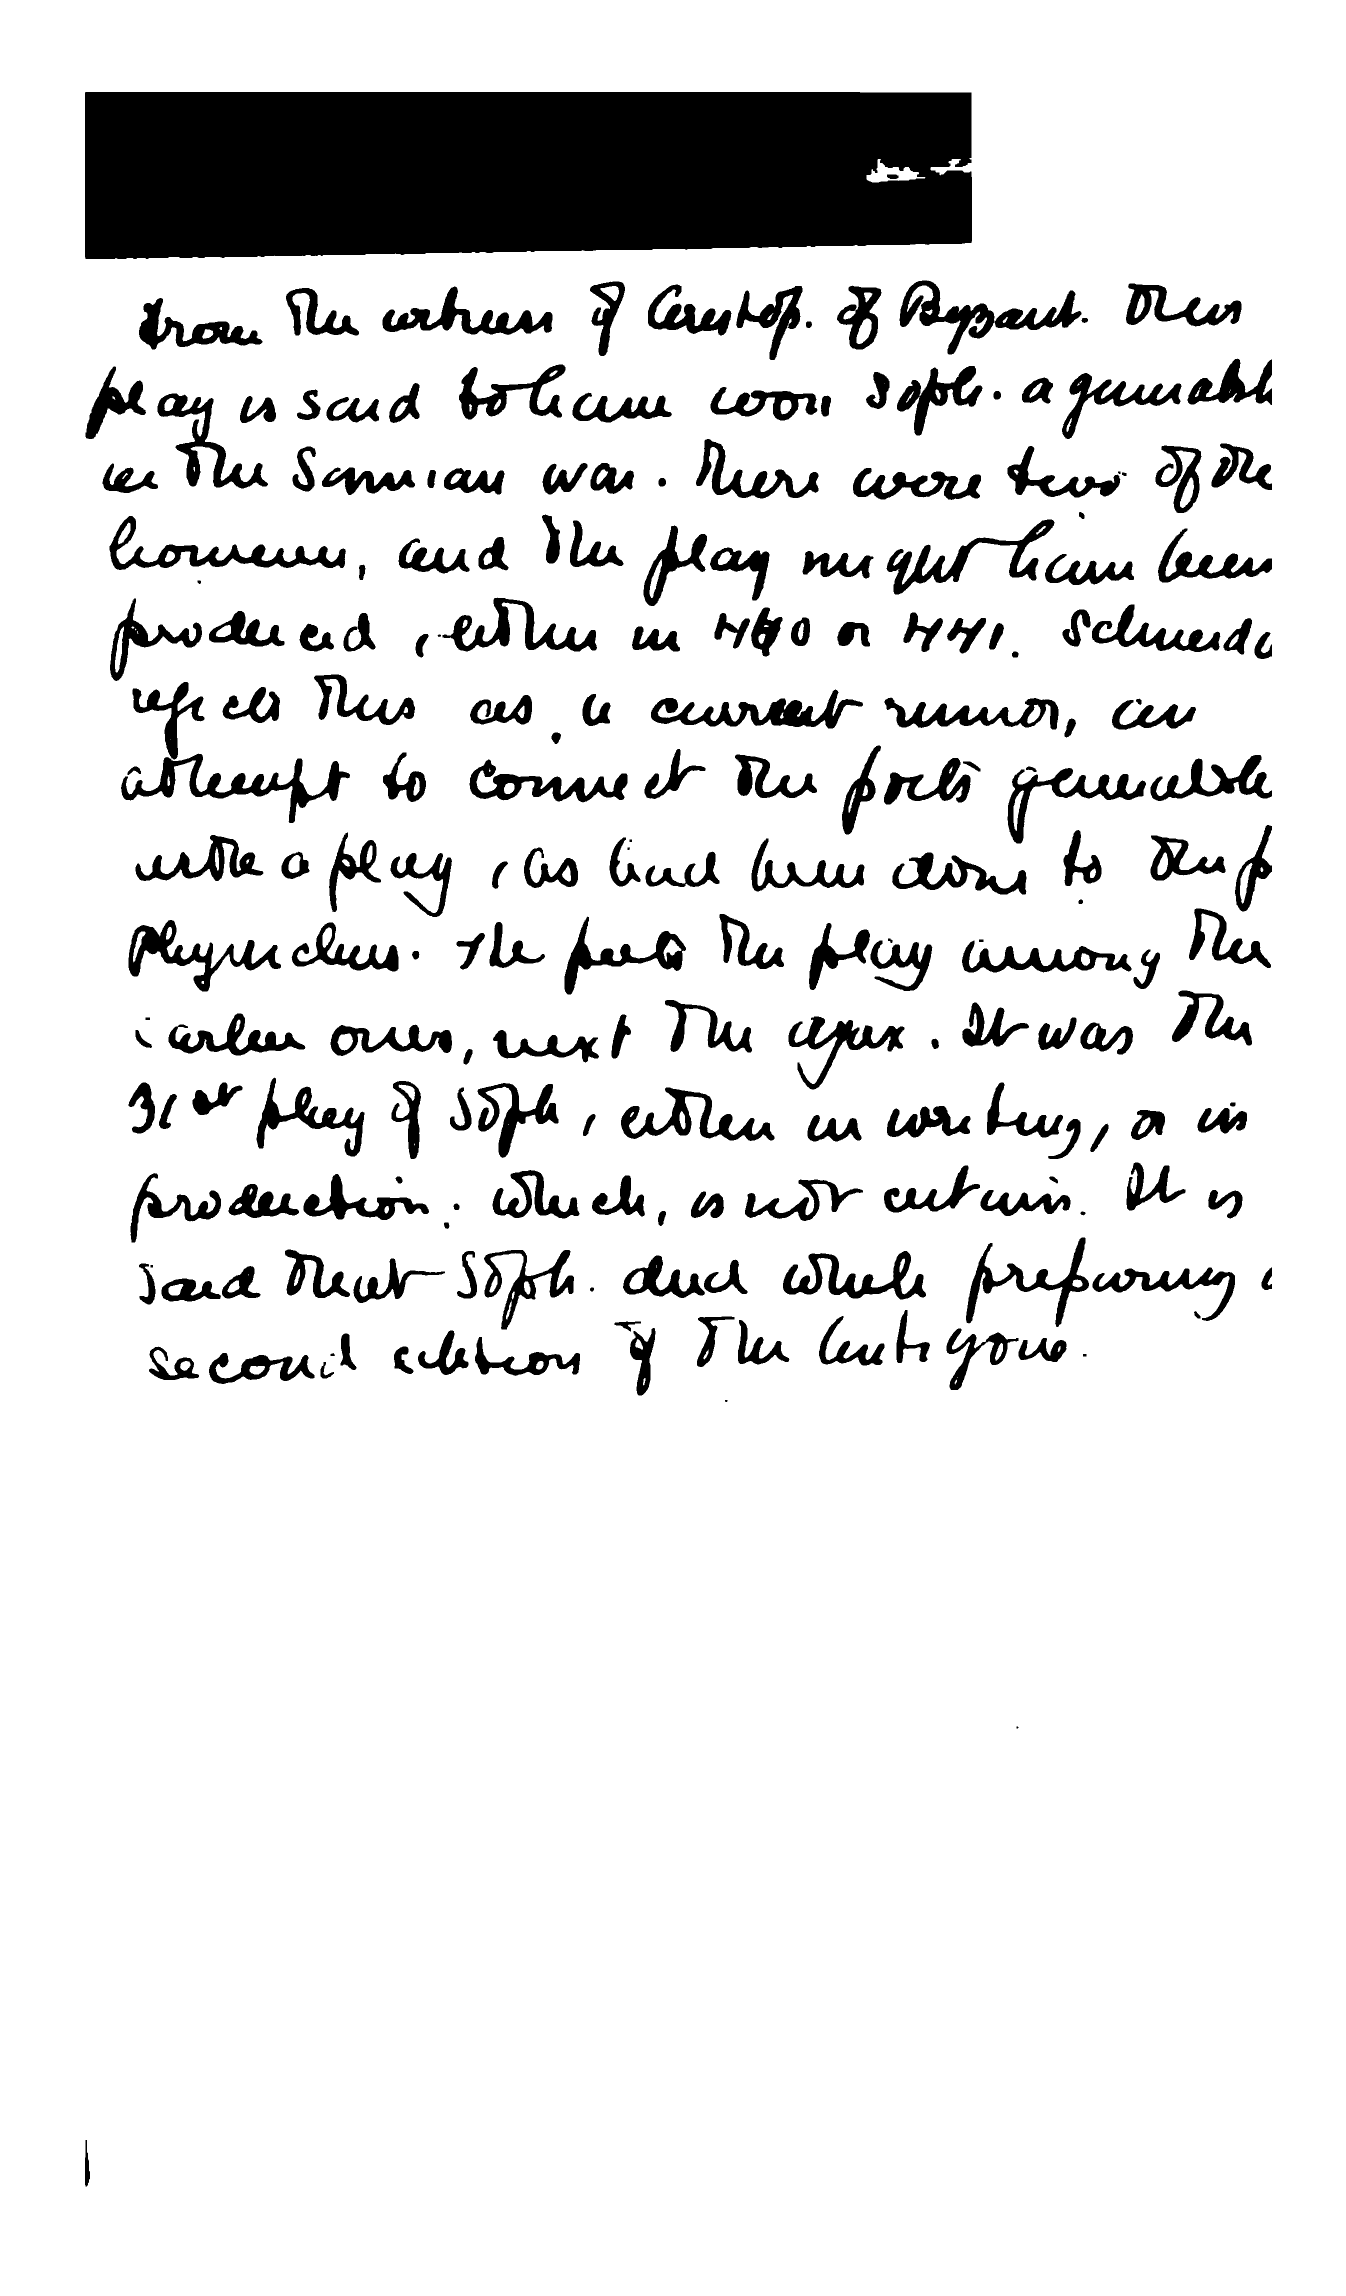 From the witness of Aristop. of Byzant. this
play is said to have won Soph. a generalsh
in the Samian war. There were two of the
however, and the play might have been
produced, either in 440 or 441. Schneid
rejects this as a current rumor, an
attempt to connect the poets generalsh
with a play, as had been done to the p
Phrynichus. He puts the play among the
earlier ones, next the Ajax. It was the
31st play of Soph, either in writing, or in
production. which, is not certain. It is
said that Soph. died while preparing a
second edition of the Antigone.